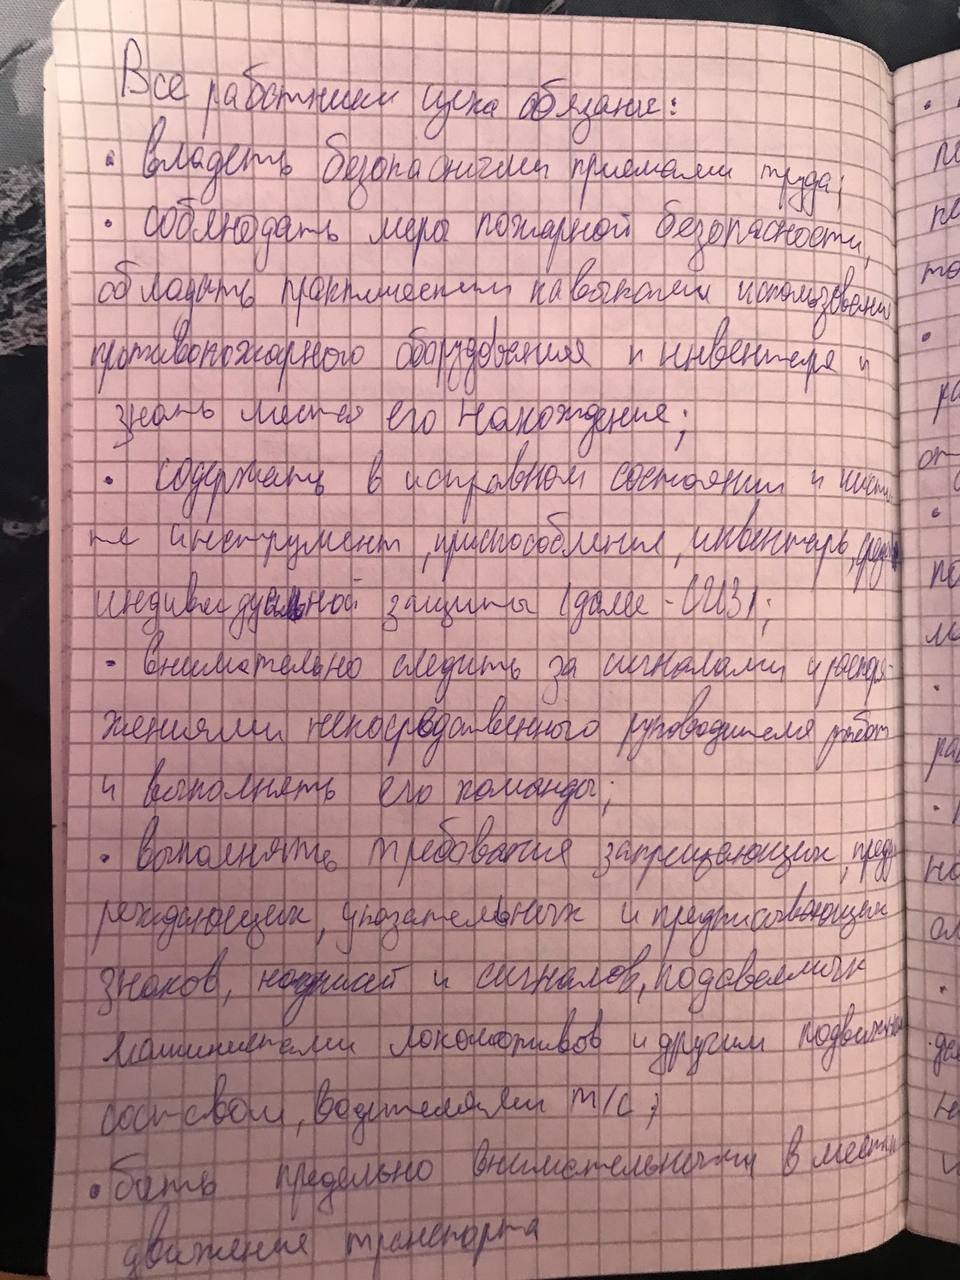 Все работники цеха обязаны:
• владеть безопасными приемами труда;
• соблюдать меры пожарной безопасности,
обладать практическими навыками использования
противопожарного оборудования и инвентаря и
знать места его нахождение;
• содержать в исправном состоянии и чисто-
те инструмент, приспособления, инвентарь, средства
индивидуальной защиты (далее - СИЗ);
• внимательно следить за сигналами и распоря-
жениями непосредственного руководителя работ
и выполнять его команды;
• выполнять требования запрещающих, преду-
реждающих, указательных и предписывающих
знаков, надписей и сигналов, подаваемых
машинистами локомотивов и другим подвижным
составом, водителями т/с;
• быть предельно внимательными в местах
движения транспорта